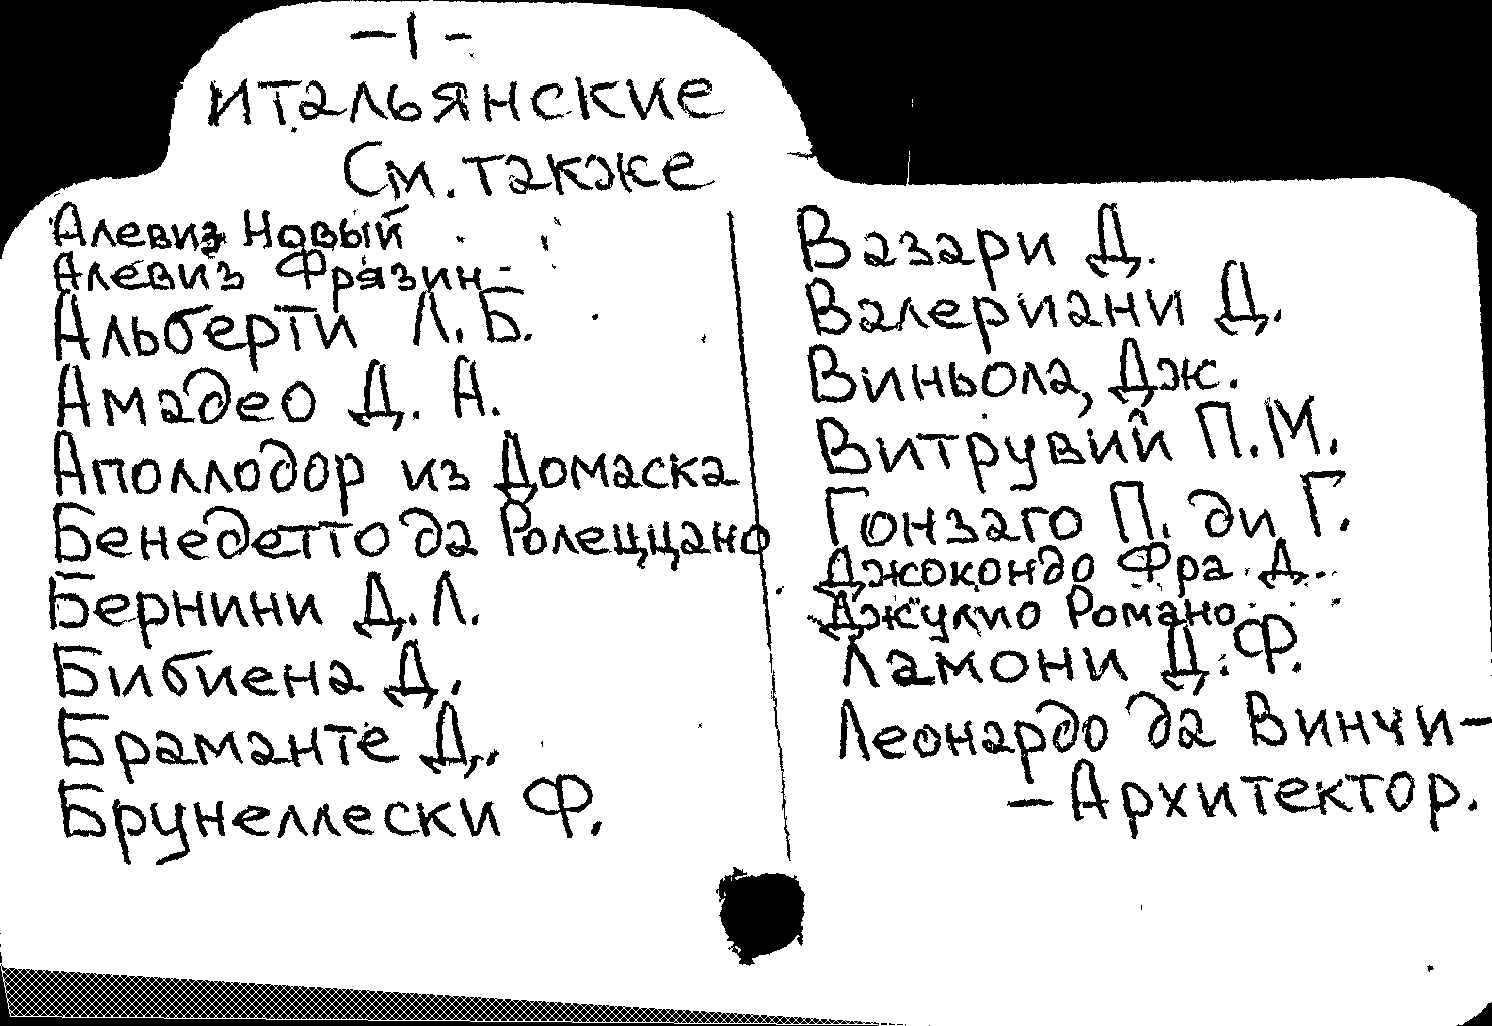 -1-
итальянские
См. также
Алевиз Новый
Алевиз Фрязин-
Альберти Л.Б.
Амадео Д. А.
Аполлодор из Домаска
Бенедетто да Ролеццано
Бернини Д.Л.
Бибиена Д.
Браманте Д.
Брунеллески Ф.
Вазари Д.
Валериани Д.
Виньола, Дж.
Витрувий П.М.
Гонзаго П. ди Г.
Джокондо Фра Д.
Джулио Романо
Ламони Д.Ф.
Леонардо да Винчи-
-Архитектор.